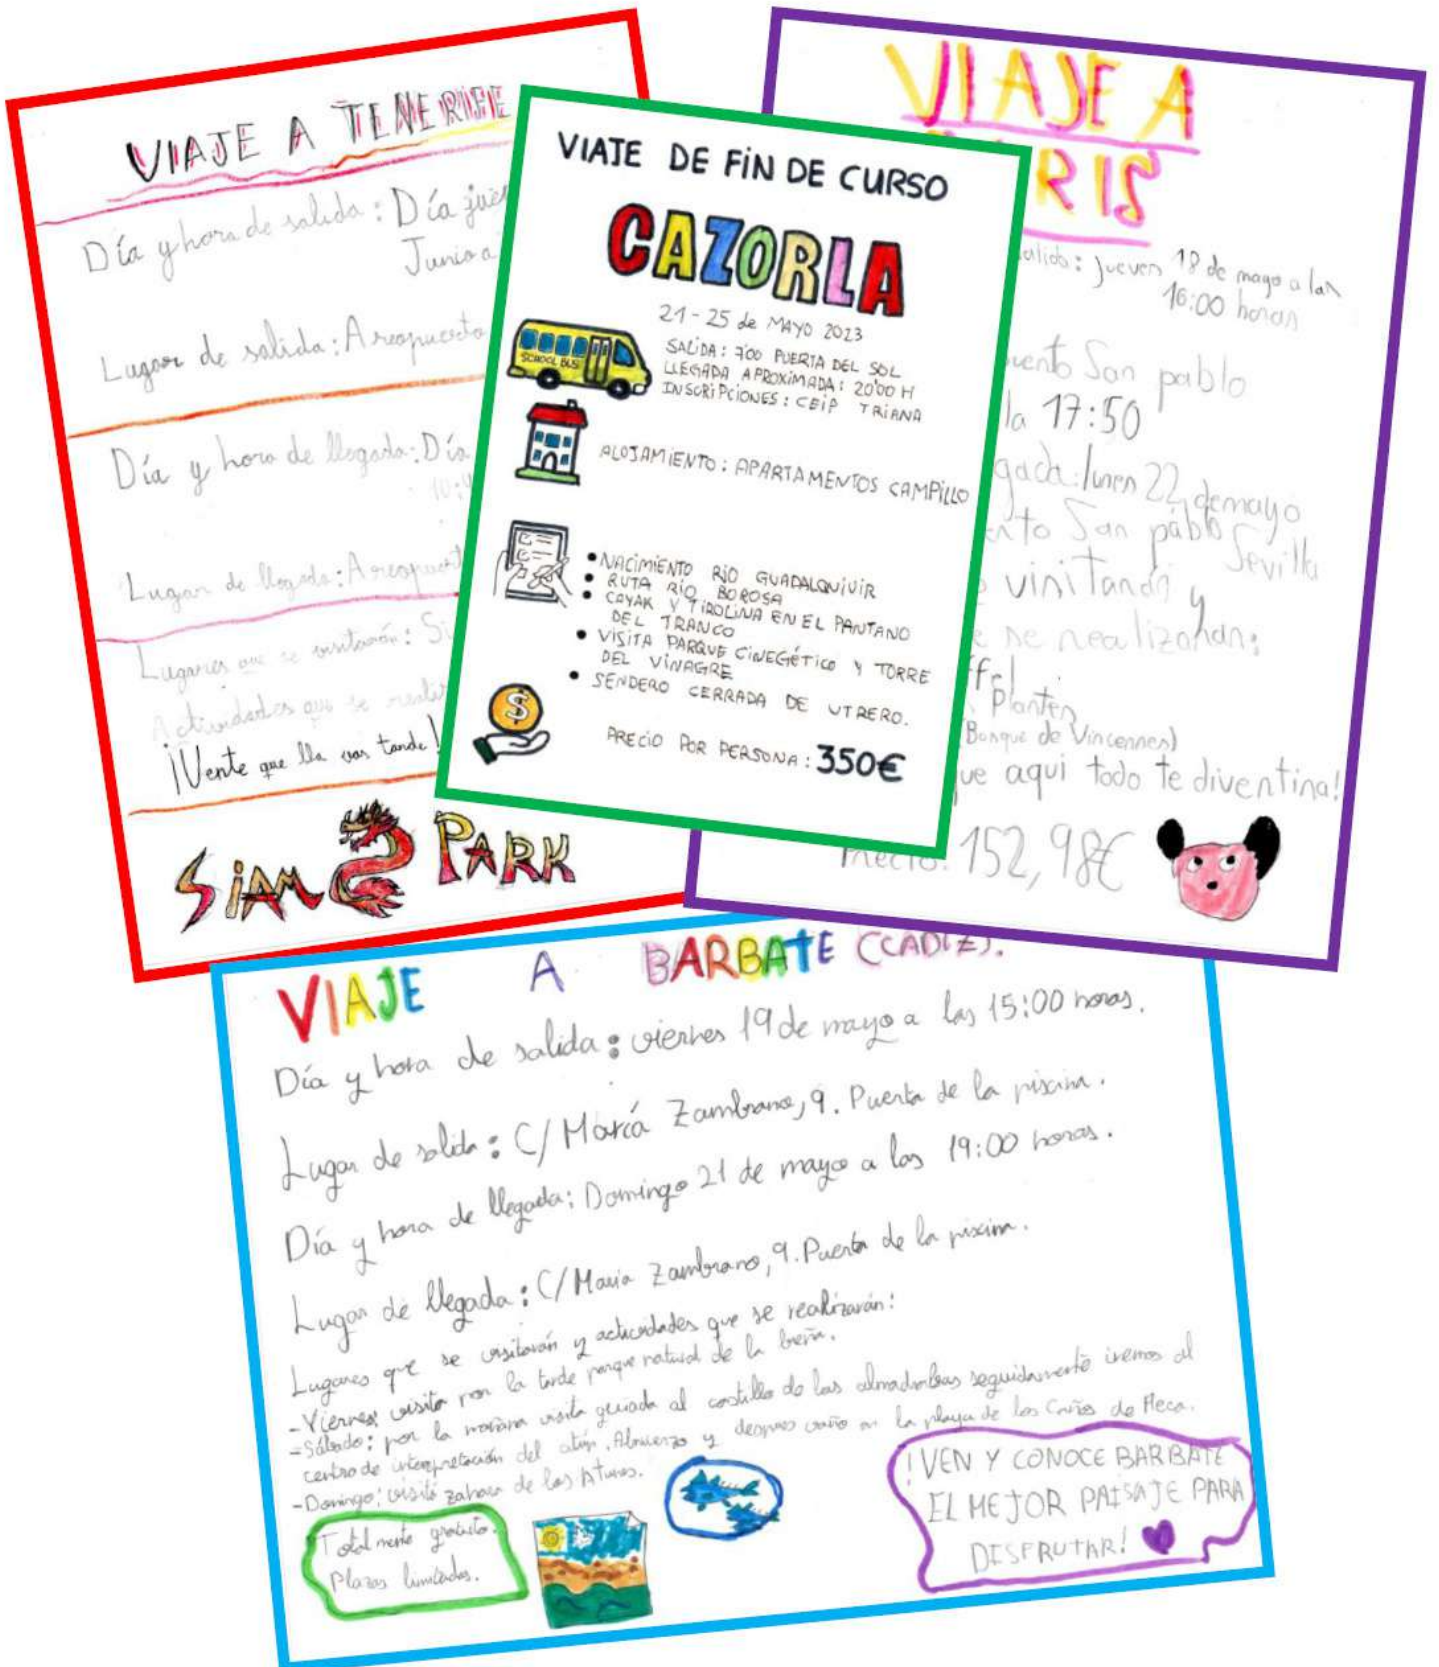 VIAJE A TENERIFE
Día y hora de salida: Día
Junio a
Lugar de salida: Areopuerto
Día y hora de llegada: Día
Lugar de llegada:
Lugares que se visitarán: Si
Actividades que se
¡Vente que lla vas tarde!
SIAM PARK
VIAJE DE FIN DE CURSO
CAZORLA
21-25 de MAYO 2023
SALIDA: 7'00 PUERTA DEL SOL
LLEGADA APROXIMADA: 20'00 H
INSCRIPCIONES: CEIP TRIANA
SCHOOL BUS
ALOJAMIENTO: APARTAMENTOS CAMPILLO
• NACIMIENTO RÍO GUADALQUIVIR
• RUTA RÍO BOROSA
• CAYAK Y TIROLINA EN EL PANTANO
DEL TRANCO
• VISITA PARQUE CINEGÉTICO Y TORRE
DEL VINAGRE
• SENDERO CERRADA DE UTRERO.
PRECIO POR PERSONA: 350€
VIAJE A
RIS
salida: jueves 18 de mayo a las
16:00 horas
San pablo
la 17:50
gada: lunes 22 de mayo
San pablo Sevilla
visitando y
e se realizaran:
(Bosque de Vincennes)
ue aqui todo te divertira!
Precio: 152,98€
VIAJE A BARBATE (CADIZ).
Día y hora de salida: viernes 19 de mayo a las 15:00 horas.
Lugar de salida: C/ María Zambrano, 9. Puerta de la piscina.
Día y hora de llegada: Domingo 21 de mayo a las 19:00 horas.
Lugar de llegada: C/ Maria Zambrano, 9. Puerta de la piscina.
Lugares que se visitarán y actividades que se realizarán:
-Viernes: visita por la tarde parque natural de la breña.
-Sábado: por la mañana visita guiada al castillo de las almadrabas seguidamente iremos al
centro de interpretación del atún. Almuerzo y despues baño en la playa de los Caños de Meca.
-Domingo: visita zahara de los Atunes.
Totalmente gratuito.
Plazas limitadas.
¡VEN Y CONOCE BARBATE
EL MEJOR PAISAJE PARA
DISFRUTAR!